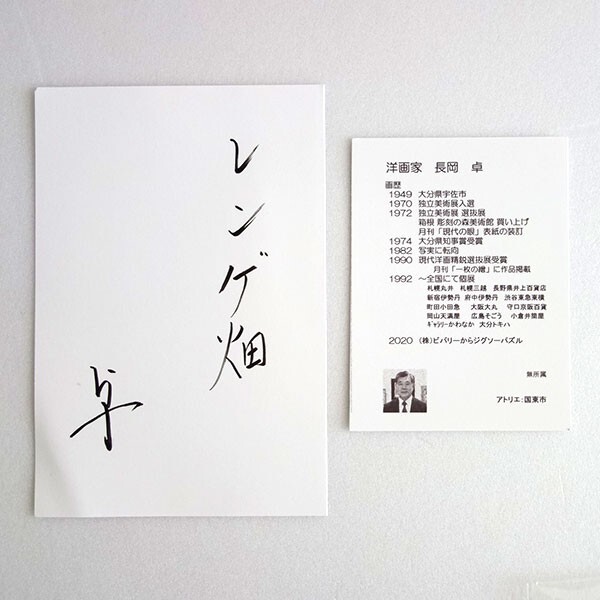 レンゲ畑
卓
洋画家 長岡 卓
画歴
1949 大分県宇佐市
1970 独立美術展入選
1972 独立美術展 選抜展
箱根 彫刻の森美術館 買い上げ
月刊「現代の眼」表紙の装訂
1974 大分県知事賞受賞
1982 写実に転向
1990 現代洋画精鋭選抜展受賞
月刊「一枚の繪」に作品掲載
1992 ～全国にて個展
札幌丸井 札幌三越 長野県井上百貨店
新宿伊勢丹 府中伊勢丹 渋谷東急東横
町田小田急 大阪大丸 守口京阪百貨
岡山天満屋 広島そごう 小倉井筒屋
ギャラリーかわなか 大分トキハ
2020 (株)ビバリーからジグソーパズル
無所属
アトリエ:国東市